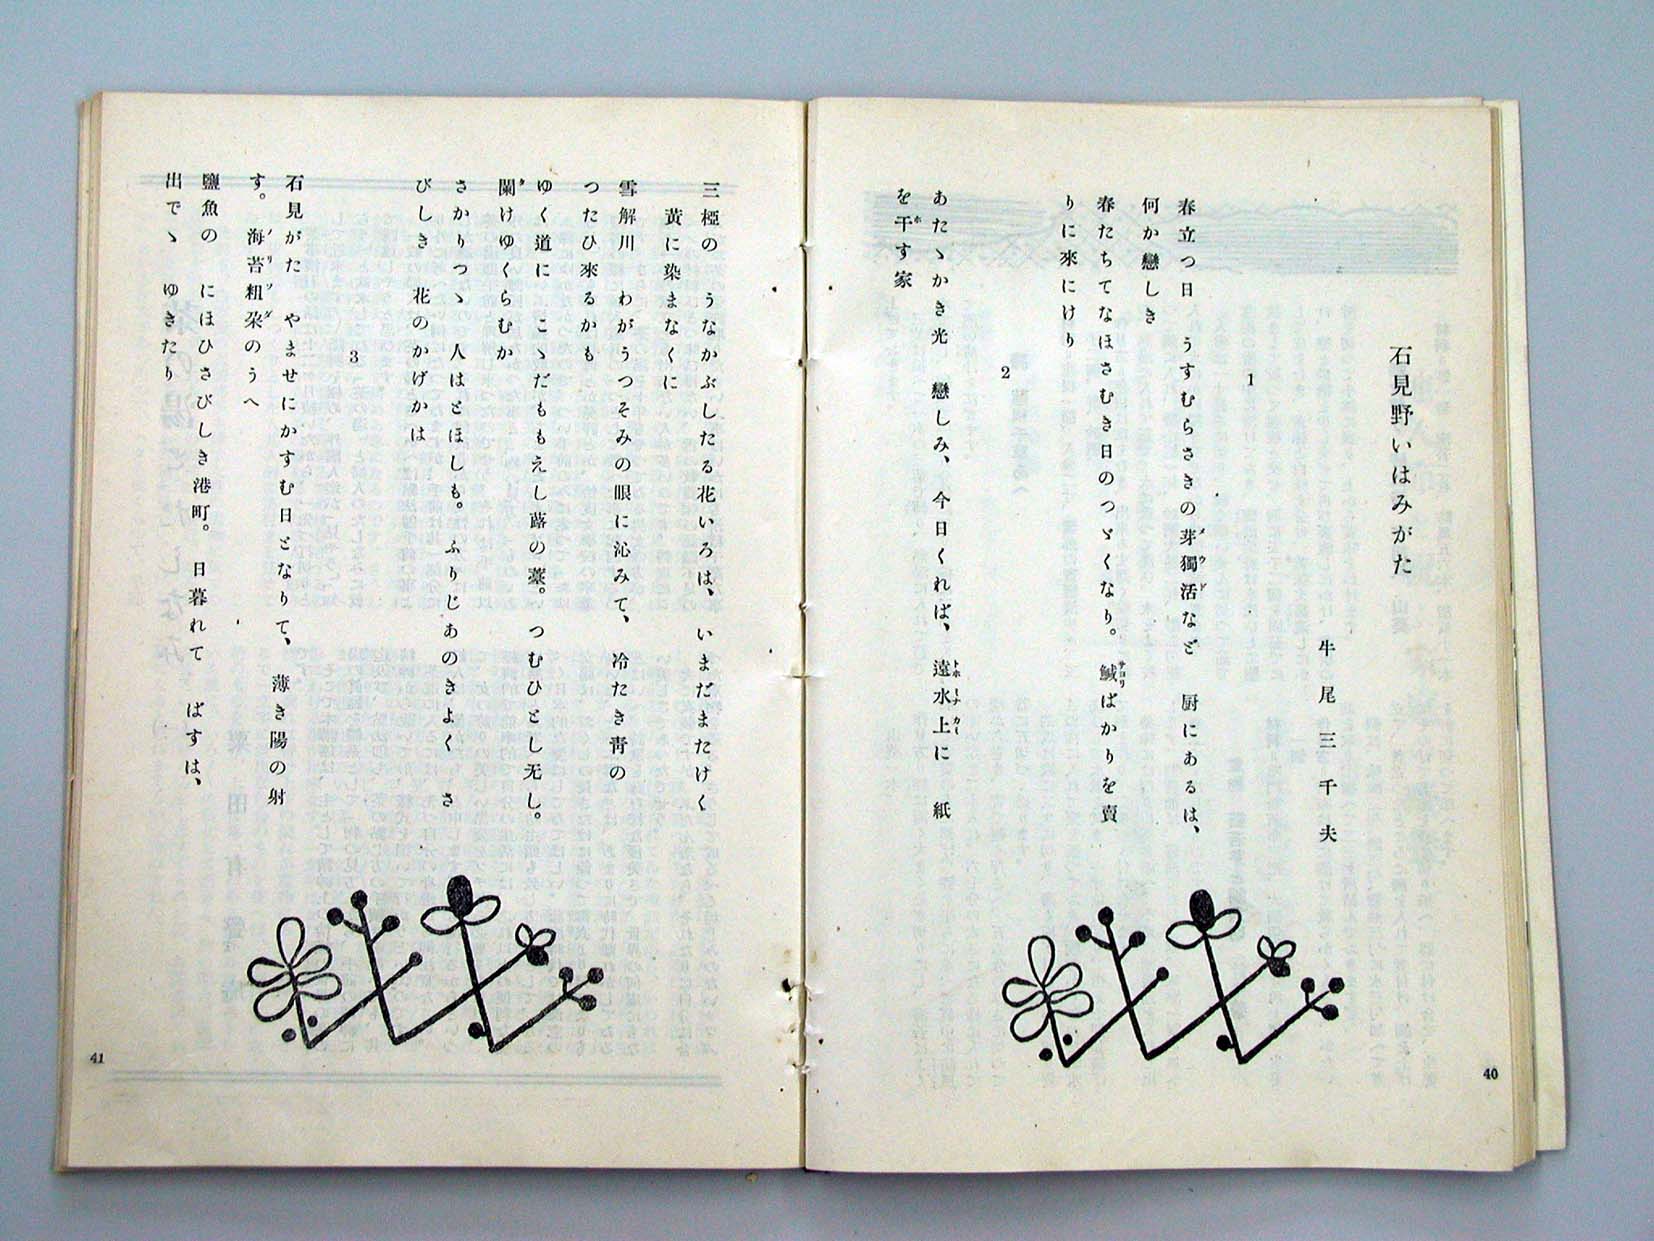 石見野いはみがた
牛尾三千夫
1
春立つ日　うすむらさきの芽獨活など　厨にあるは、
何か戀しき
春たちてなほさむき日のつゞくなり。鱵ばかりを賣
りに來にけり
2
あたゝかき光　戀しみ、今日くれば、遠水上に　紙
を干す家
40
三椏の　うなかぶしたる花いろは、いまだまたけく
黄に染まなくに
雪解川　わがうつそみの眼に沁みて、冷たき靑の
つたひ來るかも
ゆく道に　こゝだももえし蕗の薹。つむひとし无し。
闌けゆくらむか
さかりつゝ　人はとほしも。ふりじあのきよく　さ
びしき　花のかげかは
3
石見がた　やませにかすむ日となりて、薄き陽の射
す。海苔粗朶のうへ
鹽魚の　にほひさびしき港町。日暮れて　ばすは、
出でゝ　ゆきたり
41